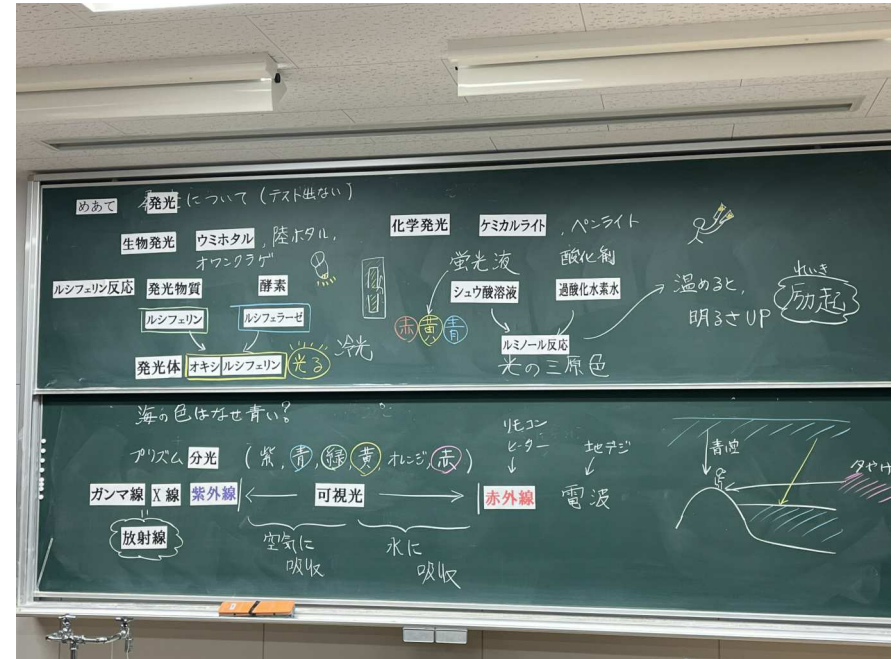 めあて 発光について（テスト出ない）
生物発光 ウミホタル，陸ホタル，
オワンクラゲ
ルシフェリン反応 発光物質 酵素
ルシフェリン ルシフェラーゼ
発光体 オキシルシフェリン 光る 冷光
化学発光 ケミカルライト，ペンライト
蛍光液 酸化剤
シュウ酸溶液 過酸化水素水
赤 黄 青
ルミノール反応
光の三原色
温めると，
明るさUP
れいき
励起
海の色はなぜ青い？
プリズム 分光 （紫，青，緑，黄 オレンジ，赤）
リモコン
ヒーター 地デジ
ガンマ線 X線 紫外線 可視光 赤外線 電波
放射線
空気に
吸収
水に
吸収
青空
夕やけ